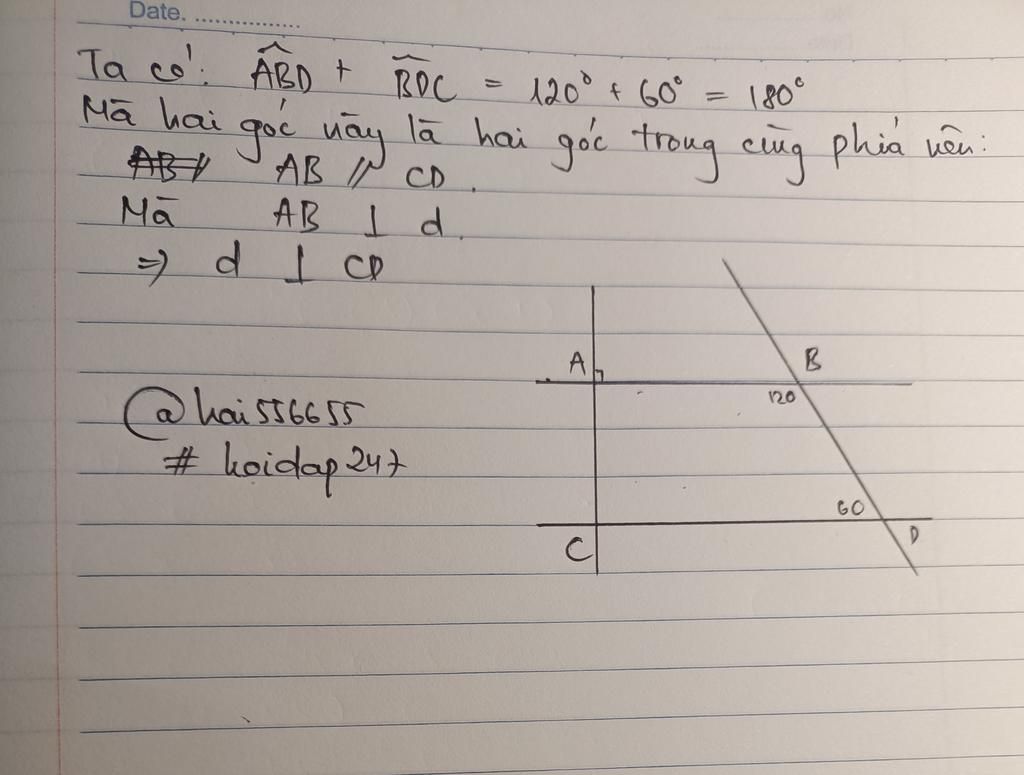 Date. ...............
Ta có: ABD + BDC = 120° + 60° = 180°
Mà hai góc này là hai góc trong cùng phía nên:
AB // AB // CD.
Mà AB ⊥ d.
=> d ⊥ CD
A
B
120
@hai556655
# hoidap247
60
C
D